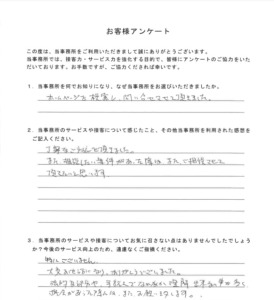 お客様アンケート
この度は、当事務所をご利用いただきまして誠にありがとうございます。
当事務所では、接客力・サービス力を強化する目的で、皆様にアンケートのご協力をいた
だいております。お手数ですが、ご協力くだされば幸いです。
1．当事務所を何でお知りになり、なぜ当事務所をお選びいただきましたか。
ホームページを検索し、問い合せさせて頂きました。
2．当事務所のサービスや接客について感じたこと、その他当事務所を利用された感想を
ご記入ください。
丁寧なご対応で頂きました。
また 相談したい案件が
また、ご相談させて
頂きたいと思います。
3．当事務所のサービスや接客についてお気に召さない点はありませんでしたでしょう
か？今後のサービス向上のため、遠慮なくご指摘ください。
特にございません。
大変お世話になり、ありがとうございました。
また